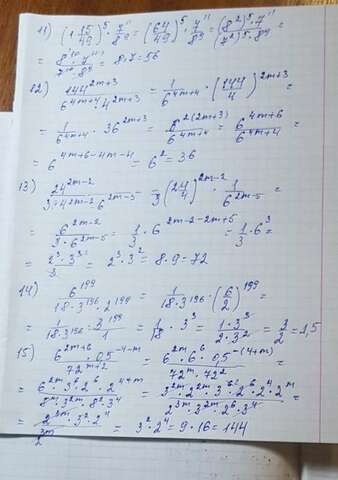 11) (1 15/49)^5 · 7^11/8^9 = (64/49)^5 · 7^11/8^9 = (8^2)^5 · 7^11/(7^2)^5 · 8^9 =
= 8^10 · 7^11/7^10 · 8^9 = 8 · 7 = 56
12) 144^2m+3/6^4m+4 4^2m+3 = 1/6^4m+4 · (144/4)^2m+3 =
= 1/6^4m+4 · 36^2m+3 = 6^2(2m+3)/6^4m+4 = 6^4m+6/6^4m+4 =
= 6^4m+6-4m-4 = 6^2 = 36
13) 24^2m-2/3·4^2m-2 6^2m-5 = 1/3 (24/4)^2m-2 · 1/6^2m-5 =
= 6^2m-2/3·6^2m-5 = 1/3 · 6^2m-2-2m+5 = 1/3 · 6^3
= 2^3·3^3/3 = 2^3 3^2 = 8·9 = 72
14) 6^199/18·3^196·2^199 = 1/18·3^196 · (6/2)^199 =
= 1/18·3^196 · 3^199/1 = 1/18 · 3^3 = 1·3^3/2·3^2 = 3/2 = 1,5
15) 6^2m+6 · 0,5^-4-m/72^m+2 = 6^2m 6^6 0,5^-(4+m)/72^m · 72^2 =
= 6^2m · 3^6 2^6 · 2^4+m/8^m · 3^2m · 8^2 3^4 = 3^2m · 2^2m · 3^6 · 2^6 · 2^4 · 2^m/2^3m · 3^2m 2^6 · 3^4 =
= 2^3m · 3^2 2^4/2^3m = 3^2 2^4 = 9 · 16 = 144